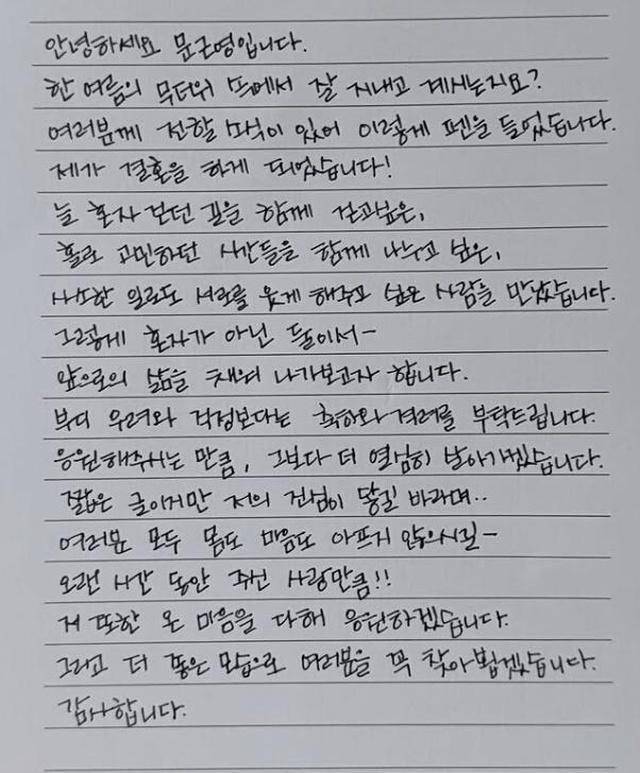 안녕하세요 문근영입니다.
한 여름의 무더위 속에서 잘 지내고 계시는지요?
여러분께 전할 소식이 있어 이렇게 펜을 들었습니다.
제가 결혼을 하게 되었습니다!
늘 혼자 걷던 길을 함께 걷고싶은,
홀로 고민하던 시간들을 함께 나누고 싶은,
사소한 일로도 서로를 웃게 해주고 싶은 사람을 만났습니다.
그렇게 혼자가 아닌 둘이서-
앞으로의 삶을 채워 나가보고자 합니다.
부디 우려와 걱정보다는 축하와 격려를 부탁드립니다.
응원해주시는 만큼, 그보다 더 열심히 살아가겠습니다.
짧은 글이지만 저의 진심이 닿길 바라며..
여러분 모두 몸도 마음도 아프지 않으시길-
오랜 시간 동안 주신 사랑만큼!!
저 또한 온 마음을 다해 응원하겠습니다.
그리고 더 좋은 모습으로 여러분을 꼭 찾아뵙겠습니다.
감사합니다.